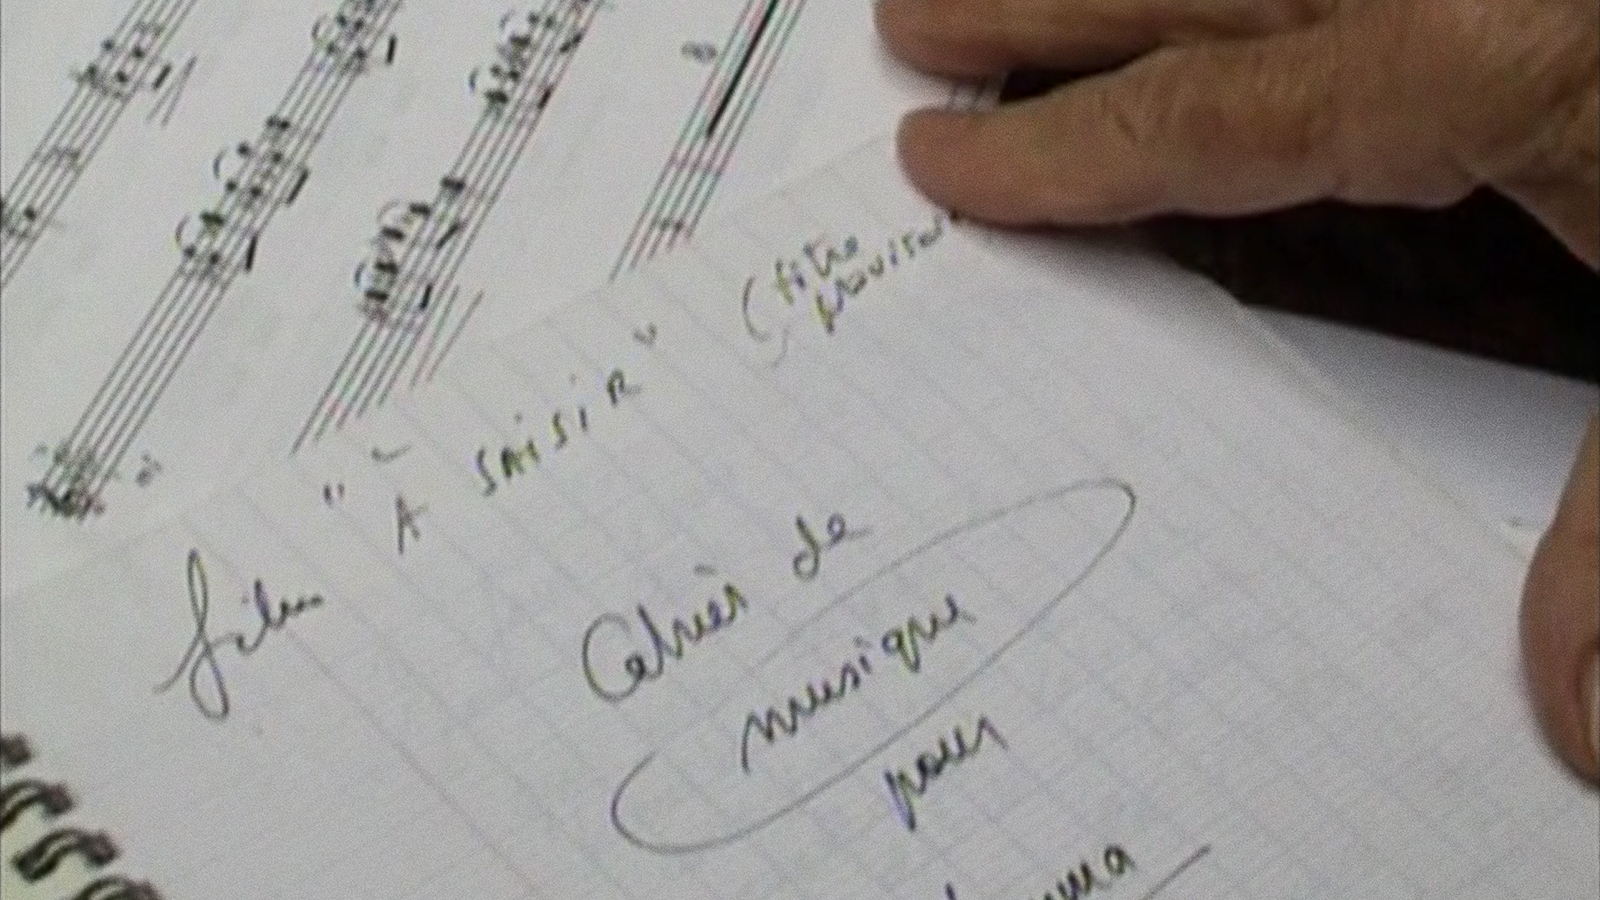 film " À SAISIR " (titre
provisoi
Cahier de
musique
pour